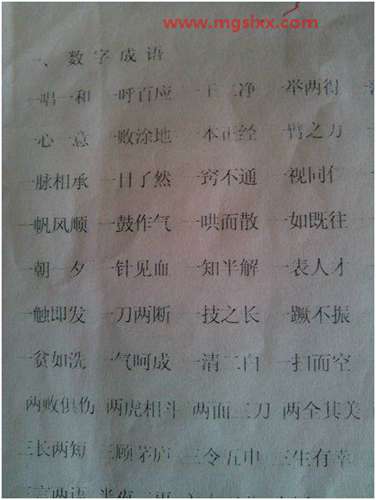 www.mgsbxx.com
一、数字成语
一唱一和 一呼百应 一干二净 一举两得
一心一意 一败涂地 一本正经 一臂之力
一脉相承 一目了然 一窍不通 一视同仁
一帆风顺 一鼓作气 一哄而散 一如既往
一朝一夕 一针见血 一知半解 一表人才
一触即发 一刀两断 一技之长 一蹶不振
一贫如洗 一气呵成 一清二白 一扫而空
两败俱伤 两虎相斗 两面三刀 两全其美
三长两短 三顾茅庐 三令五申 三生有幸
三言两语